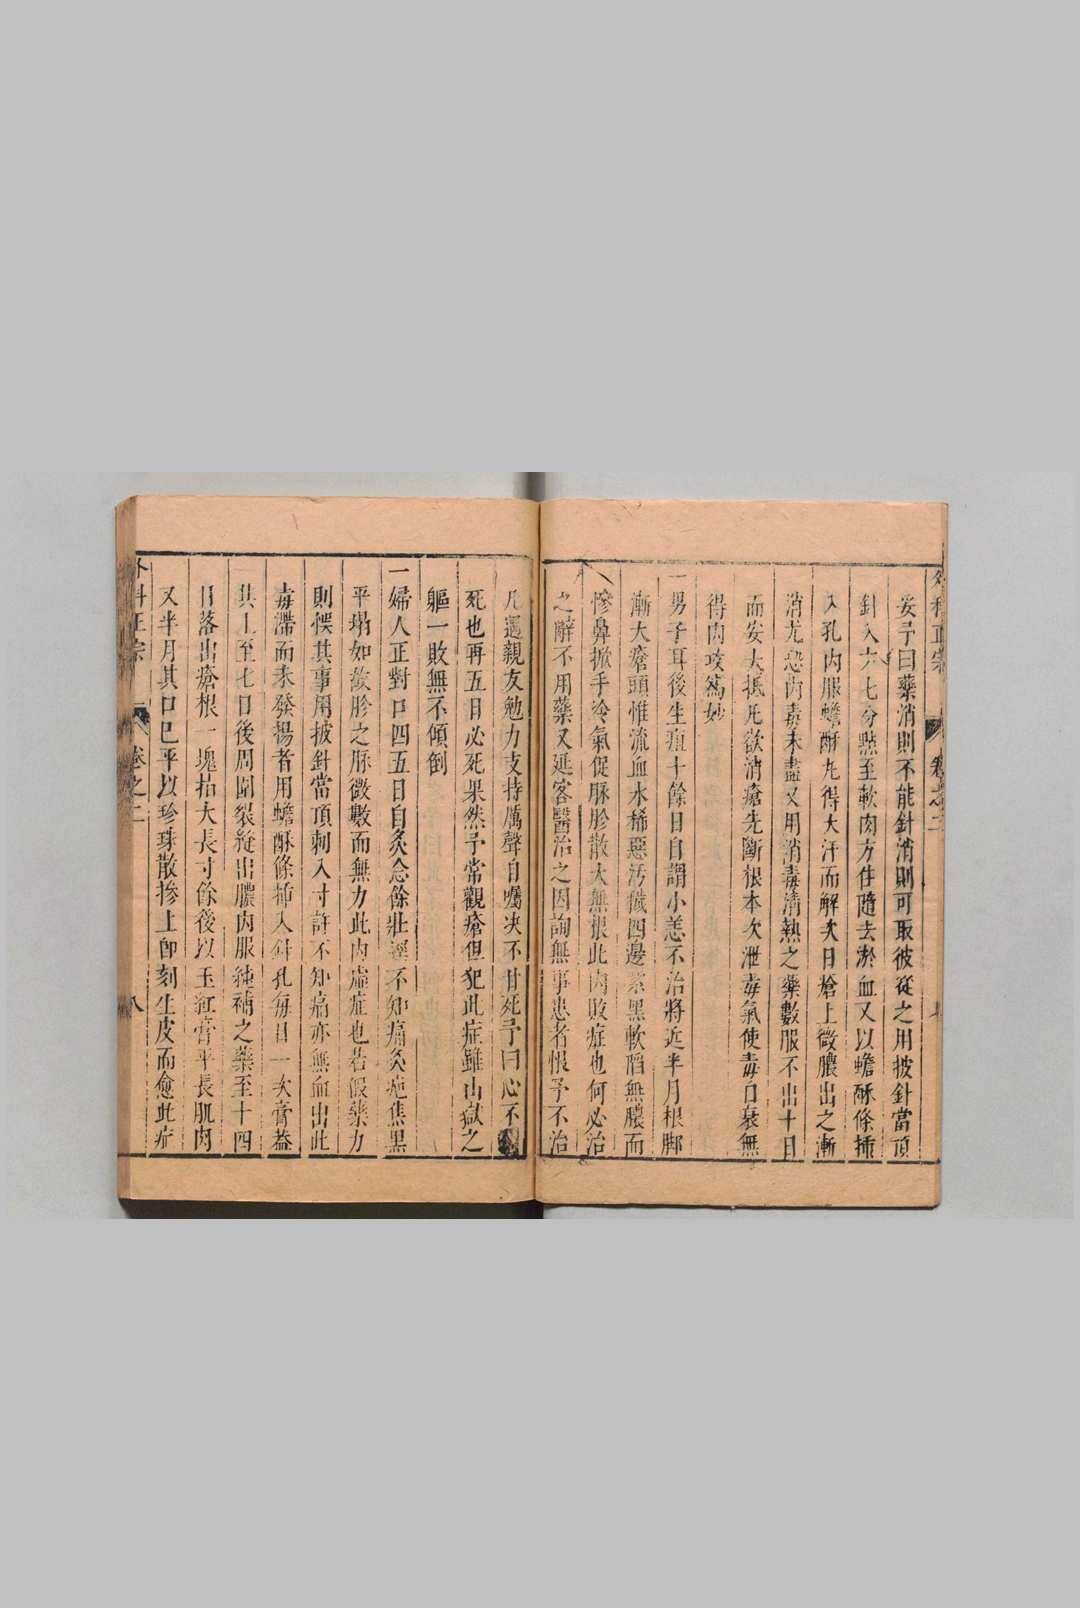 外科正宗 卷之二
妥予曰藥消則不能針消則可取彼從之用披針當頂
針入六七分㸃至軟肉方住隨去淤血又以蟾酥條插
入孔內服蟾酥丸得大汗而解次日瘡上微膿出之漸
消尤恐內毒未盡又用消毒清熱之藥數服不出十日
而安大抵凡欲消瘡先斷根本次泄毒氣使毒自衰無
得內攻為妙
一男子耳後生疽十餘日自謂小恙不治將近半月根脚
漸大瘡頭惟流血水稀惡汚穢四邊紫黑軟䧟無膿面
慘鼻掀手冷氣促脉胗散大無根此內敗症也何必治
之辭不用藥又延客醫治之因詢無事患者恨予不治
凡遇親友勉力支持厲聲自囑决不甘死予曰心不
死也再五日必死果然予常觀瘡但犯此症雖山獄之
軀一敗無不傾倒
一婦人正對口四五日自灸念餘壯遲不知痛灸疤焦黑
平塌如故胗之脉微數而無力此內虛症也若假藥力
則悞其事用披針當頂刺入寸許不知痛亦無血出此
毒滯而未發揚者用蟾酥條插入針孔每日一次膏蓋
其上至七日後周圍裂縫出膿內服純補之藥至十四
日落出瘡根一塊拾大長寸餘後以玉紅膏平長肌肉
又半月其口已平以珍珠散摻上卽刻生皮而愈此症
外科正宗 卷之二 八